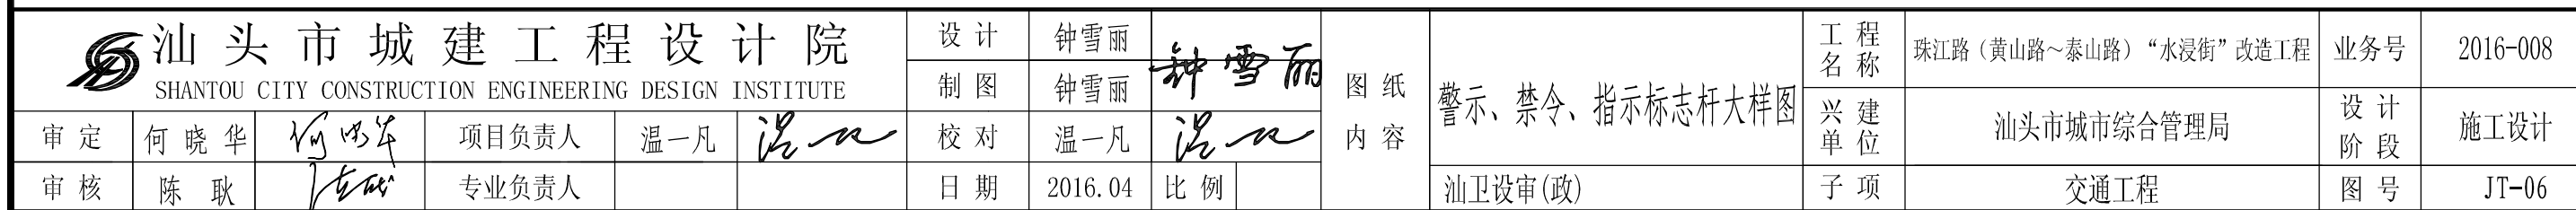 汕头市城建工程设计院
SHANTOU CITY CONSTRUCTION ENGINEERING DESIGN INSTITUTE
审定 何晓华 何晓华 项目负责人 温一凡 温一凡
审核 陈耿 陈耿 专业负责人
设计 钟雪丽 钟雪丽
制图 钟雪丽
校对 温一凡 温一凡
日期 2016.04 比例
图纸内容
警示、禁令、指示标志杆大样图
汕卫设审(政)
工程名称 珠江路（黄山路～泰山路）“水浸街”改造工程 业务号 2016-008
兴建单位 汕头市城市综合管理局 设计阶段 施工设计
子项 交通工程 图号 JT-06